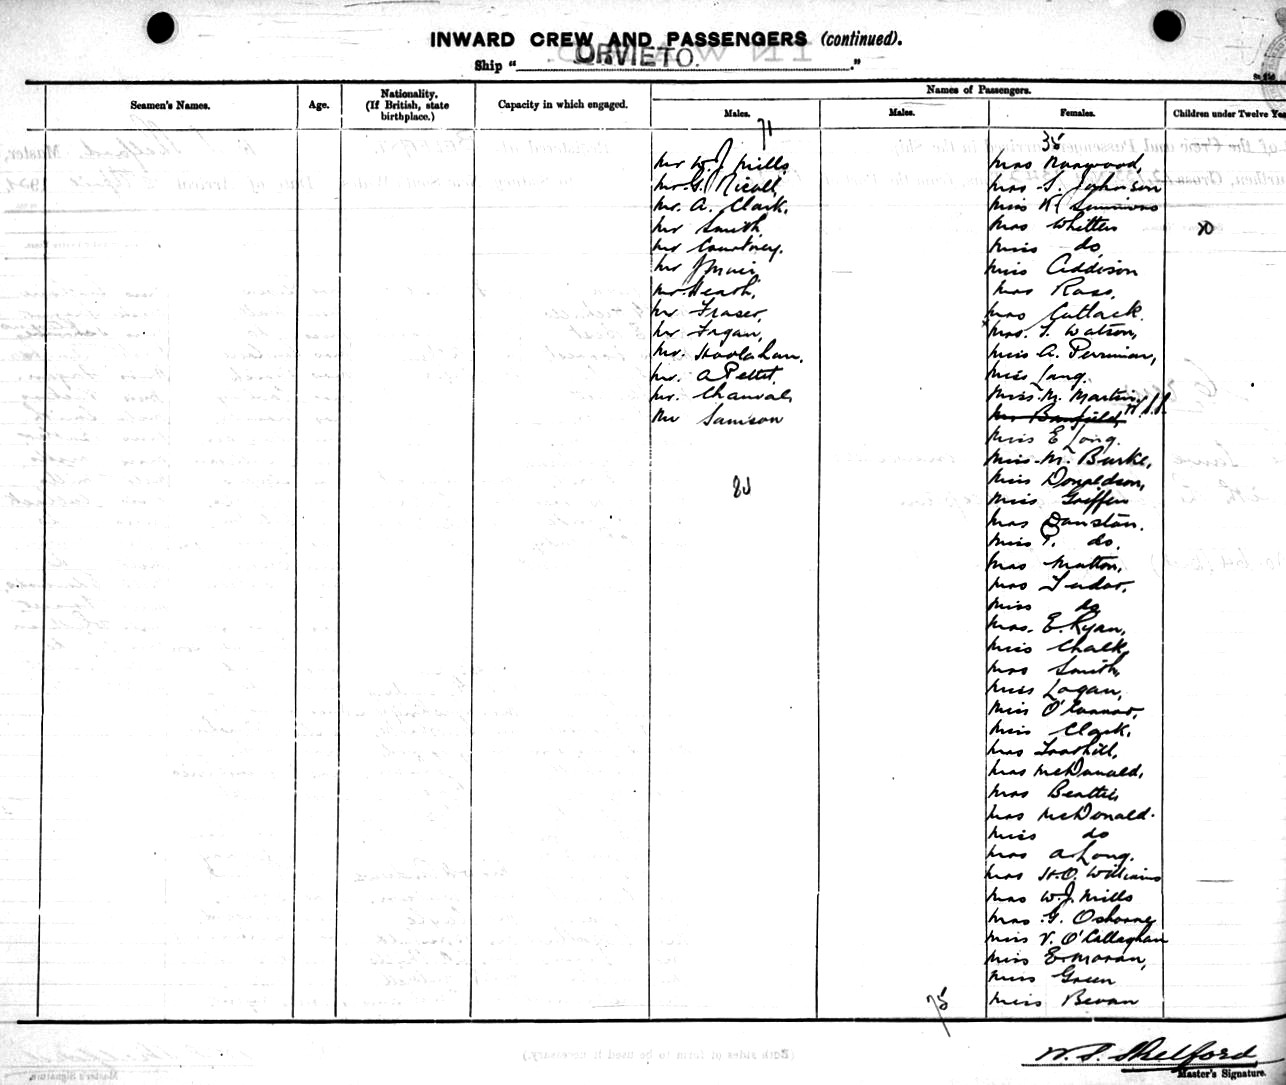 INWARD CREW AND PASSENGERS (continued).
Ship " ORVIETO. "
Seamen's Names.
Age.
Nationality.
(If British, state
birthplace.)
Capacity in which engaged.
Names of Passengers.
Males.
Males.
Females.
Children under Twelve Yea
71
Mr W. J. Mills,
Mr G. Nicoll,
Mr. A. Clark,
Mr Smith,
Mr Courtney.
Mr J Muir,
Mr. Heath,
Mr Fraser,
Mr Fagan,
Mr. Hoolahan,
Mr. A Pettit,
Mr.
Mr Samson
82
38
Mrs Norwood,
Mrs S. Johnson
Miss K. Simmons
Mrs Whitten
Miss do
Miss Addison
Mrs Ross,
Mrs Cutlack.
Mrs. T. Watson,
Miss A. Perriman,
Miss Lang.
Miss M. Martin,
Mr Banfield,
Miss E Long.
Miss M. Burke,
Miss Donaldson,
Miss Griffin
Mrs Dunstan.
Miss P. do.
Mrs Mutton,
Mrs Tudor,
Miss do
Mrs. E. Ryan,
Miss Chalk,
Mrs Smith,
Miss Logan,
Miss O'Connor,
Miss Clark,
Mrs Toothill,
Mrs McDonald,
Mrs Beattie,
Mrs McDonald.
Miss do
Mrs A Long.
Mrs H. O. Williams
Mrs W. J. Mills
Mrs G. Osborne
Miss V. O'Callaghan
Miss E Moran,
Miss Green
Miss Bevan
75
W. S. Shelford
Master's Signature.